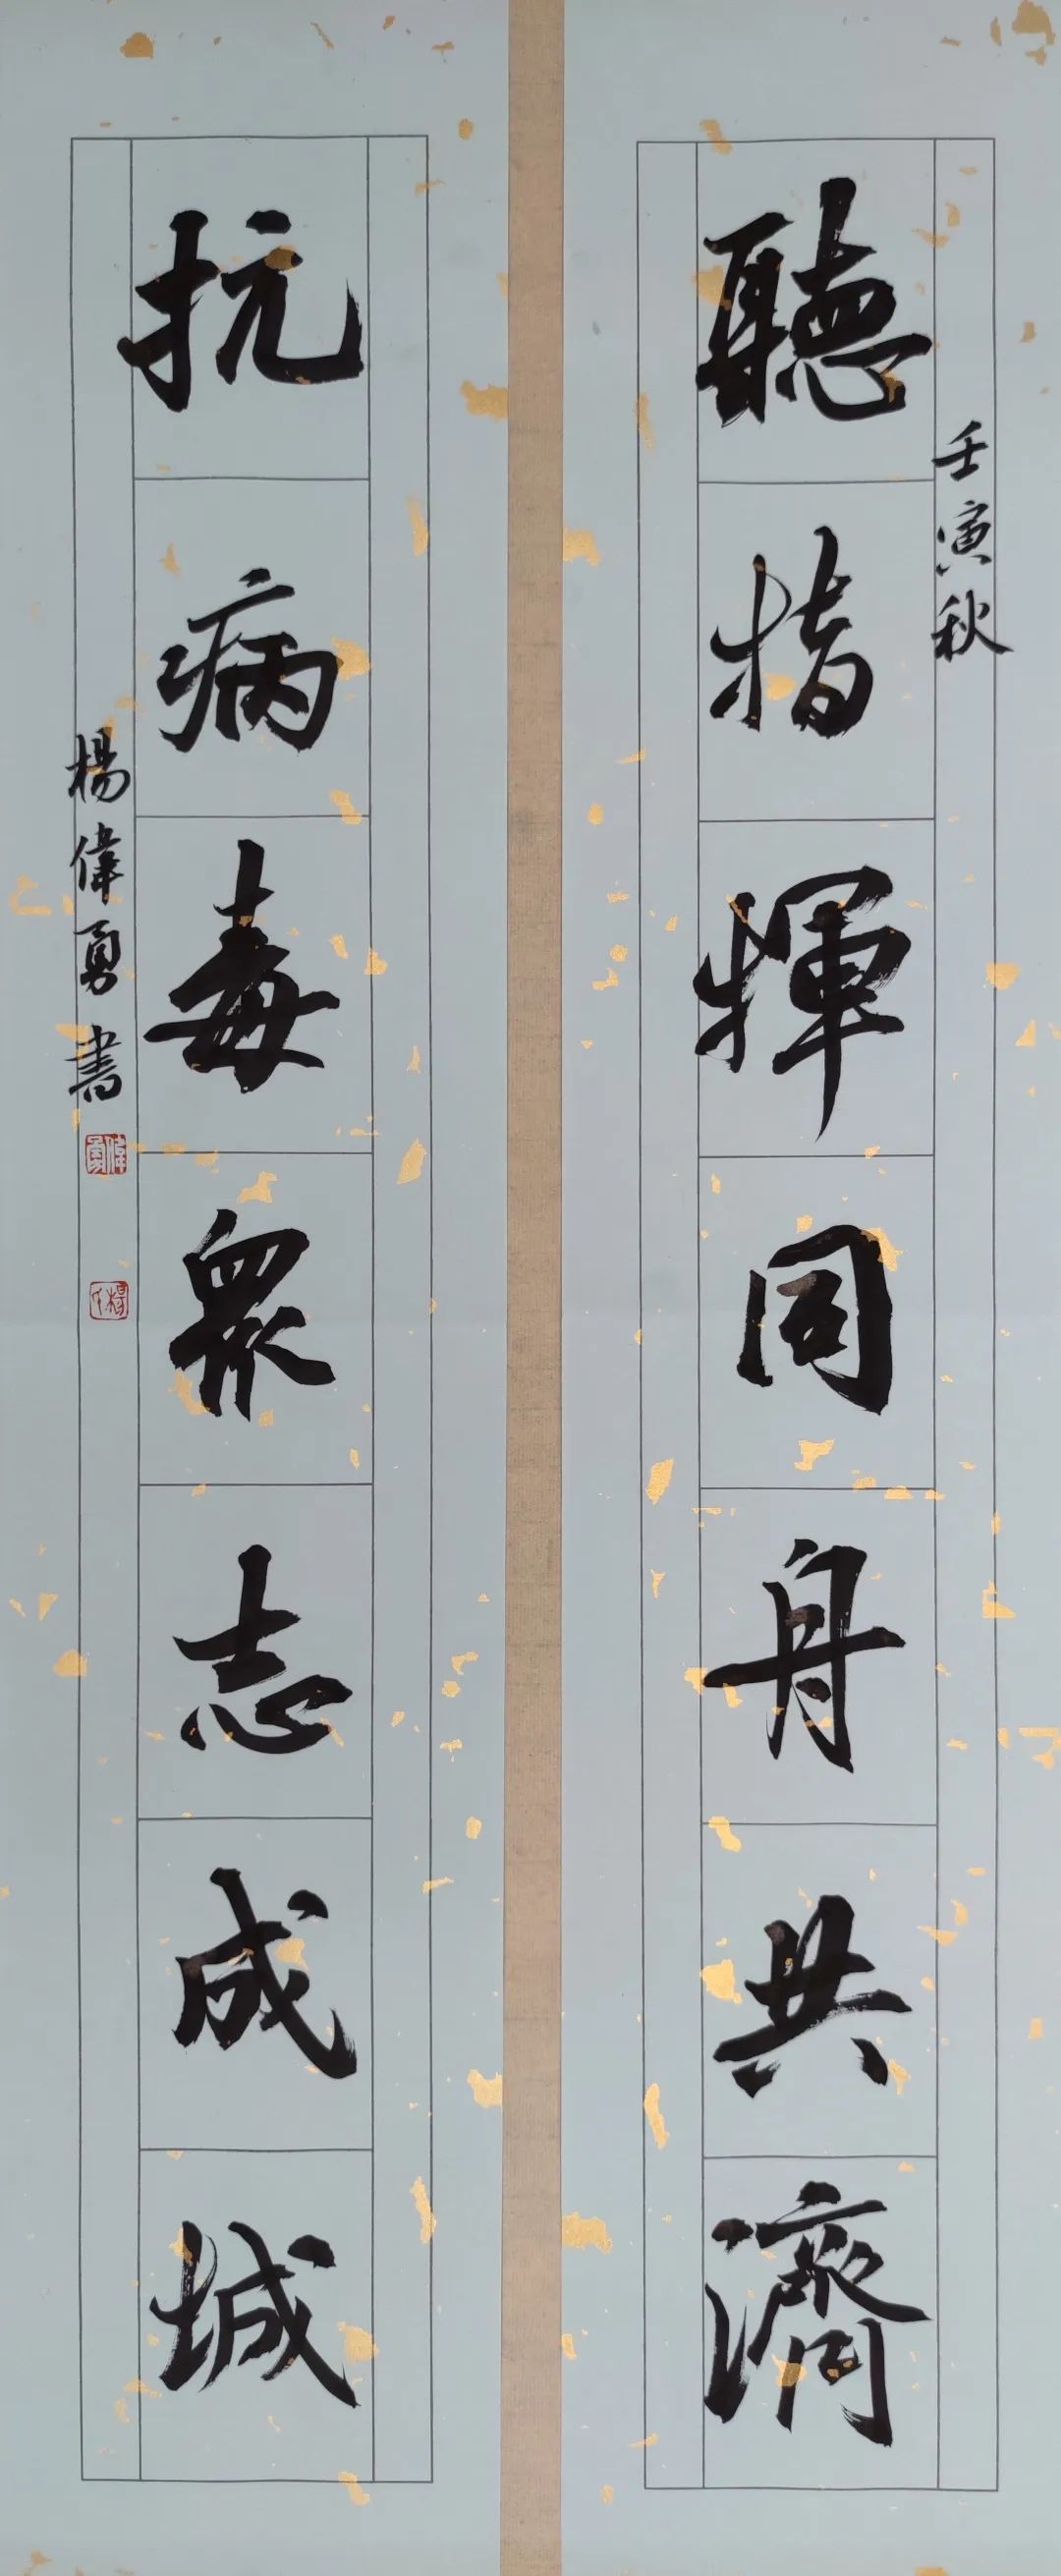 壬寅秋
聽指揮同舟共濟
抗病毒衆志成城
楊偉勇書
偉勇
楊